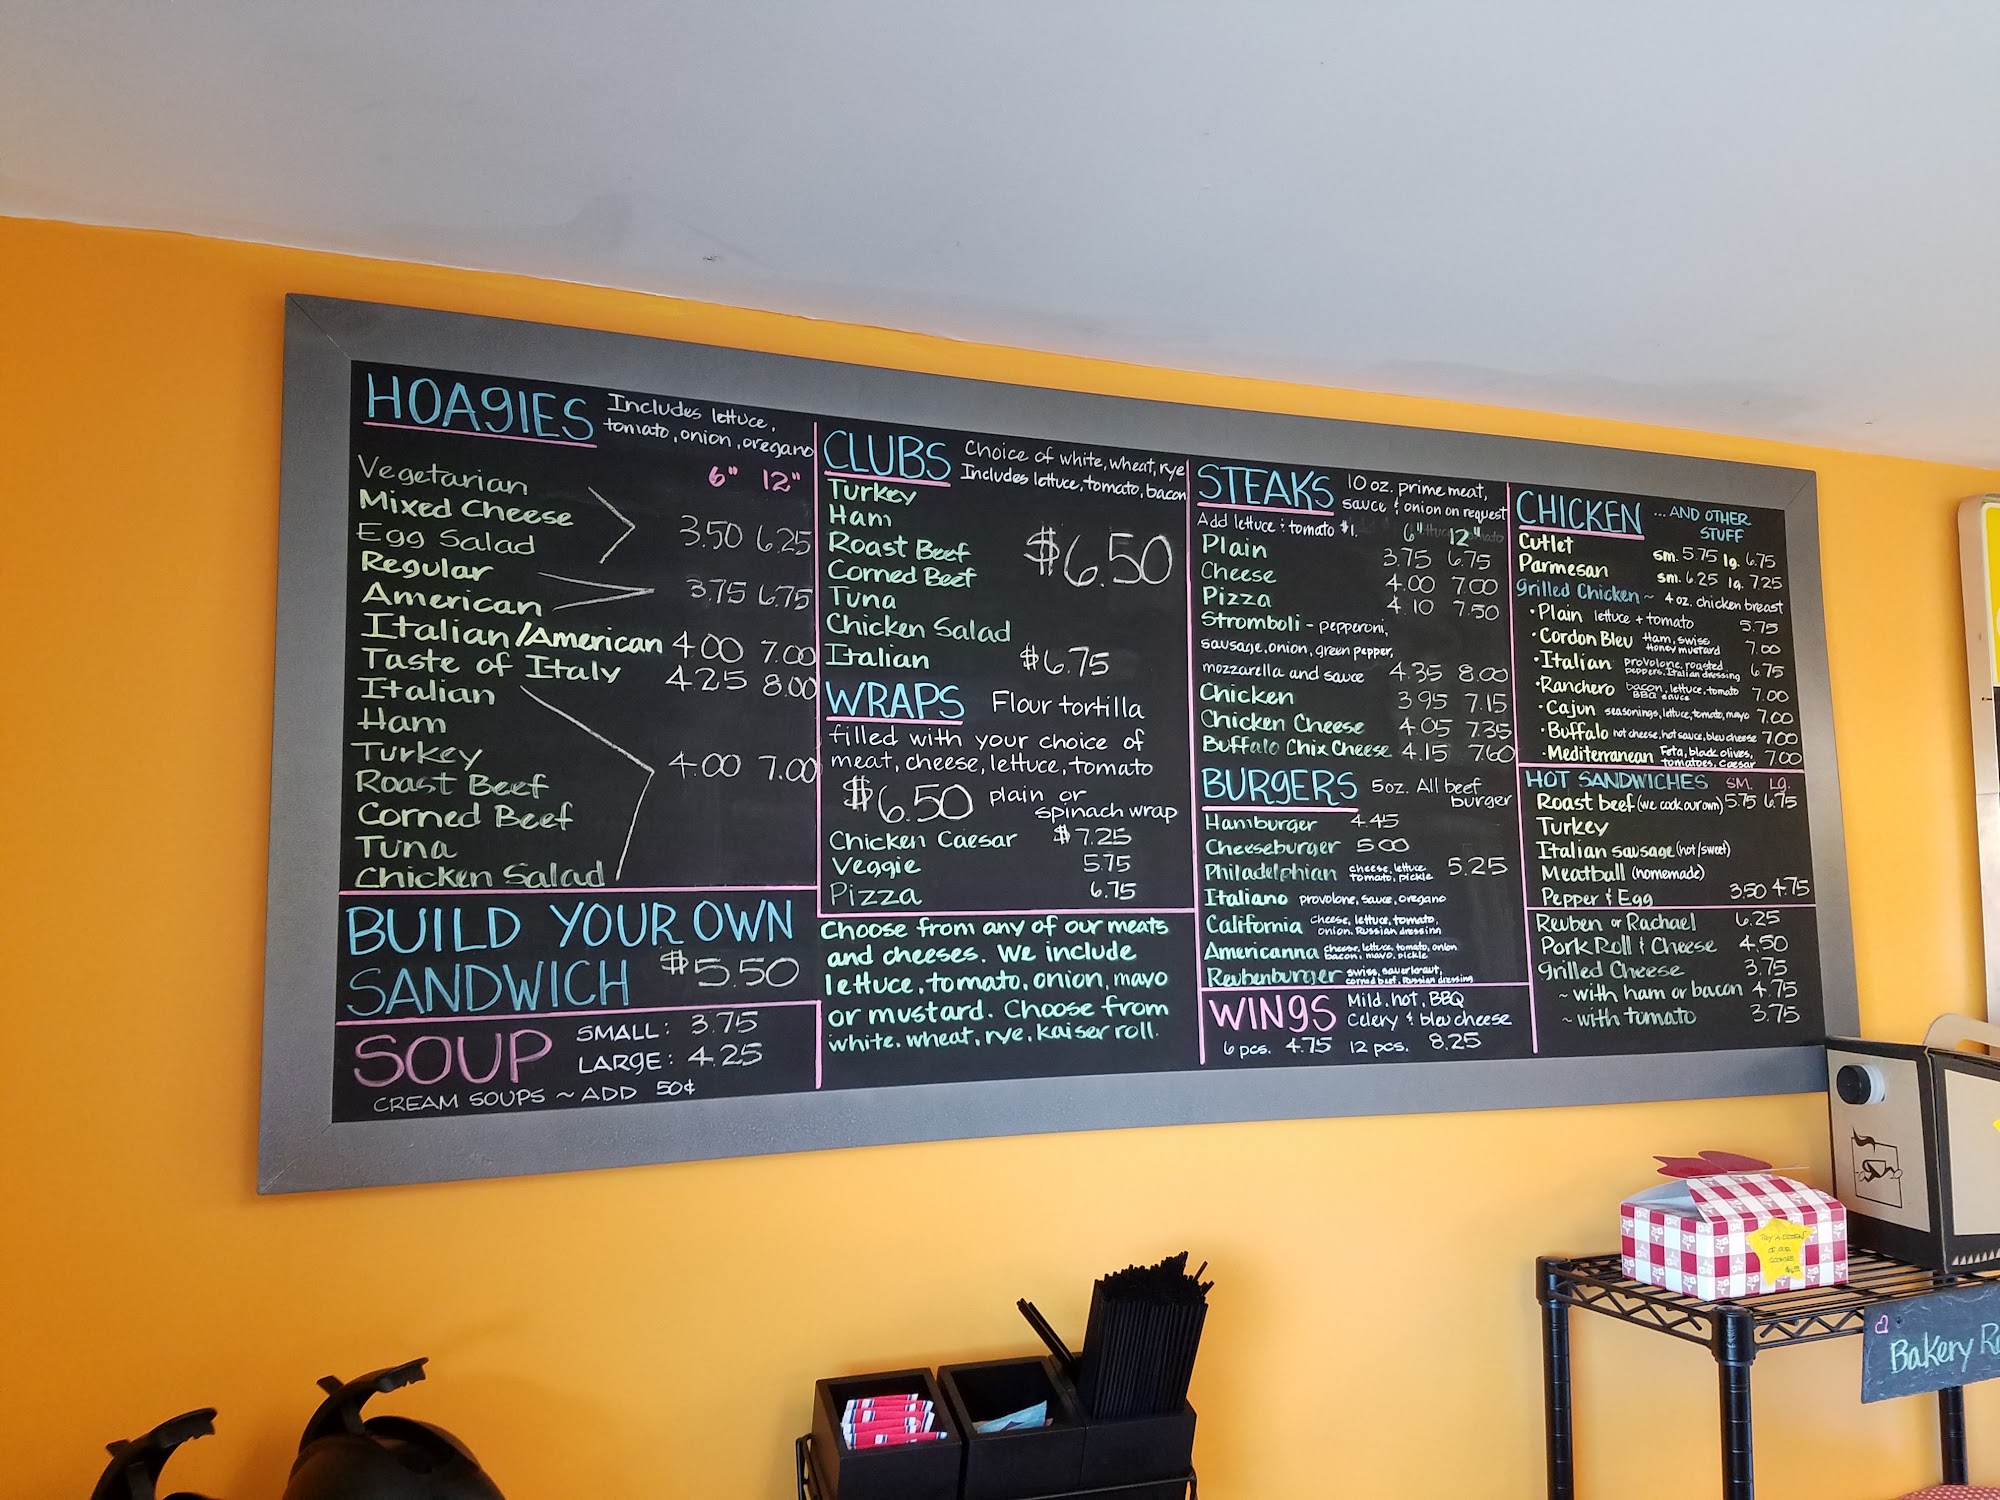 HOAGIES Includes lettuce,
tomato, onion, oregano
6" 12"
Vegetarian
Mixed Cheese
Egg Salad
3.50 6.25
Regular
American
3.75 6.75
Italian/American 4.00 7.00
Taste of Italy 4.25 8.00
Italian
Ham
Turkey
Roast Beef
Corned Beef
Tuna
Chicken Salad
4.00 7.00
BUILD YOUR OWN
SANDWICH $5.50
SOUP SMALL: 3.75
LARGE: 4.25
CREAM SOUPS ~ ADD 50¢
CLUBS Choice of white, wheat, rye
Includes lettuce, tomato, bacon
Turkey
Ham
Roast Beef
Corned Beef
$6.50
Tuna
Chicken Salad
Italian $6.75
WRAPS Flour tortilla
filled with your choice of
meat, cheese, lettuce, tomato
$6.50 plain or
spinach wrap
Chicken Caesar $7.25
Veggie 5.75
Pizza 6.75
Choose from any of our meats
and cheeses. We include
lettuce, tomato, onion, mayo
or mustard. Choose from
white, wheat, rye, kaiser roll.
STEAKS 10 oz. prime meat,
sauce & onion on request
Add lettuce & tomato $1. 6" 12"
Plain 3.75 6.75
Cheese 4.00 7.00
Pizza 4.10 7.50
Stromboli - pepperoni,
sausage, onion, green pepper,
mozzarella and sauce 4.35 8.00
Chicken 3.95 7.15
Chicken Cheese 4.05 7.35
Buffalo Chix Cheese 4.15 7.60
BURGERS 5oz. All beef
burger
Hamburger 4.45
Cheeseburger 5.00
Philadelphian cheese, lettuce
tomato, pickle 5.25
Italiano provolone, sauce, oregano
California cheese, lettuce, tomato,
onion, Russian dressing
Americanna cheese, lettuce, tomato, onion
bacon, mayo, pickle
Reubenburger swiss, sauerkraut,
corned beef, Russian dressing
WINGS Mild, hot, BBQ
Celery & bleu cheese
6 pcs. 4.75 12 pcs. 8.25
CHICKEN ...AND OTHER
STUFF
Cutlet sm. 5.75 lg. 6.75
Parmesan sm. 6.25 lg. 7.25
Grilled Chicken ~ 4 oz. chicken breast
• Plain lettuce + tomato 5.75
• Cordon Bleu Ham, swiss
Honey mustard 7.00
• Italian provolone, roasted
peppers, Italian dressing 6.75
• Ranchero bacon, lettuce, tomato
BBQ sauce 7.00
• Cajun seasonings, lettuce, tomato, mayo 7.00
• Buffalo hot cheese, hot sauce, bleu cheese 7.00
• Mediterranean Feta, black olives,
tomatoes, Caesar 7.00
HOT SANDWICHES SM. LG.
Roast beef (we cook our own) 5.75 6.75
Turkey
Italian sausage (hot/sweet)
Meatball (homemade)
Pepper & Egg 3.50 4.75
Reuben or Rachael 6.25
Pork Roll & Cheese 4.50
Grilled Cheese 3.75
~ with ham or bacon 4.75
~ with tomato 3.75
TRY A DOZEN
OF OUR
Bakery